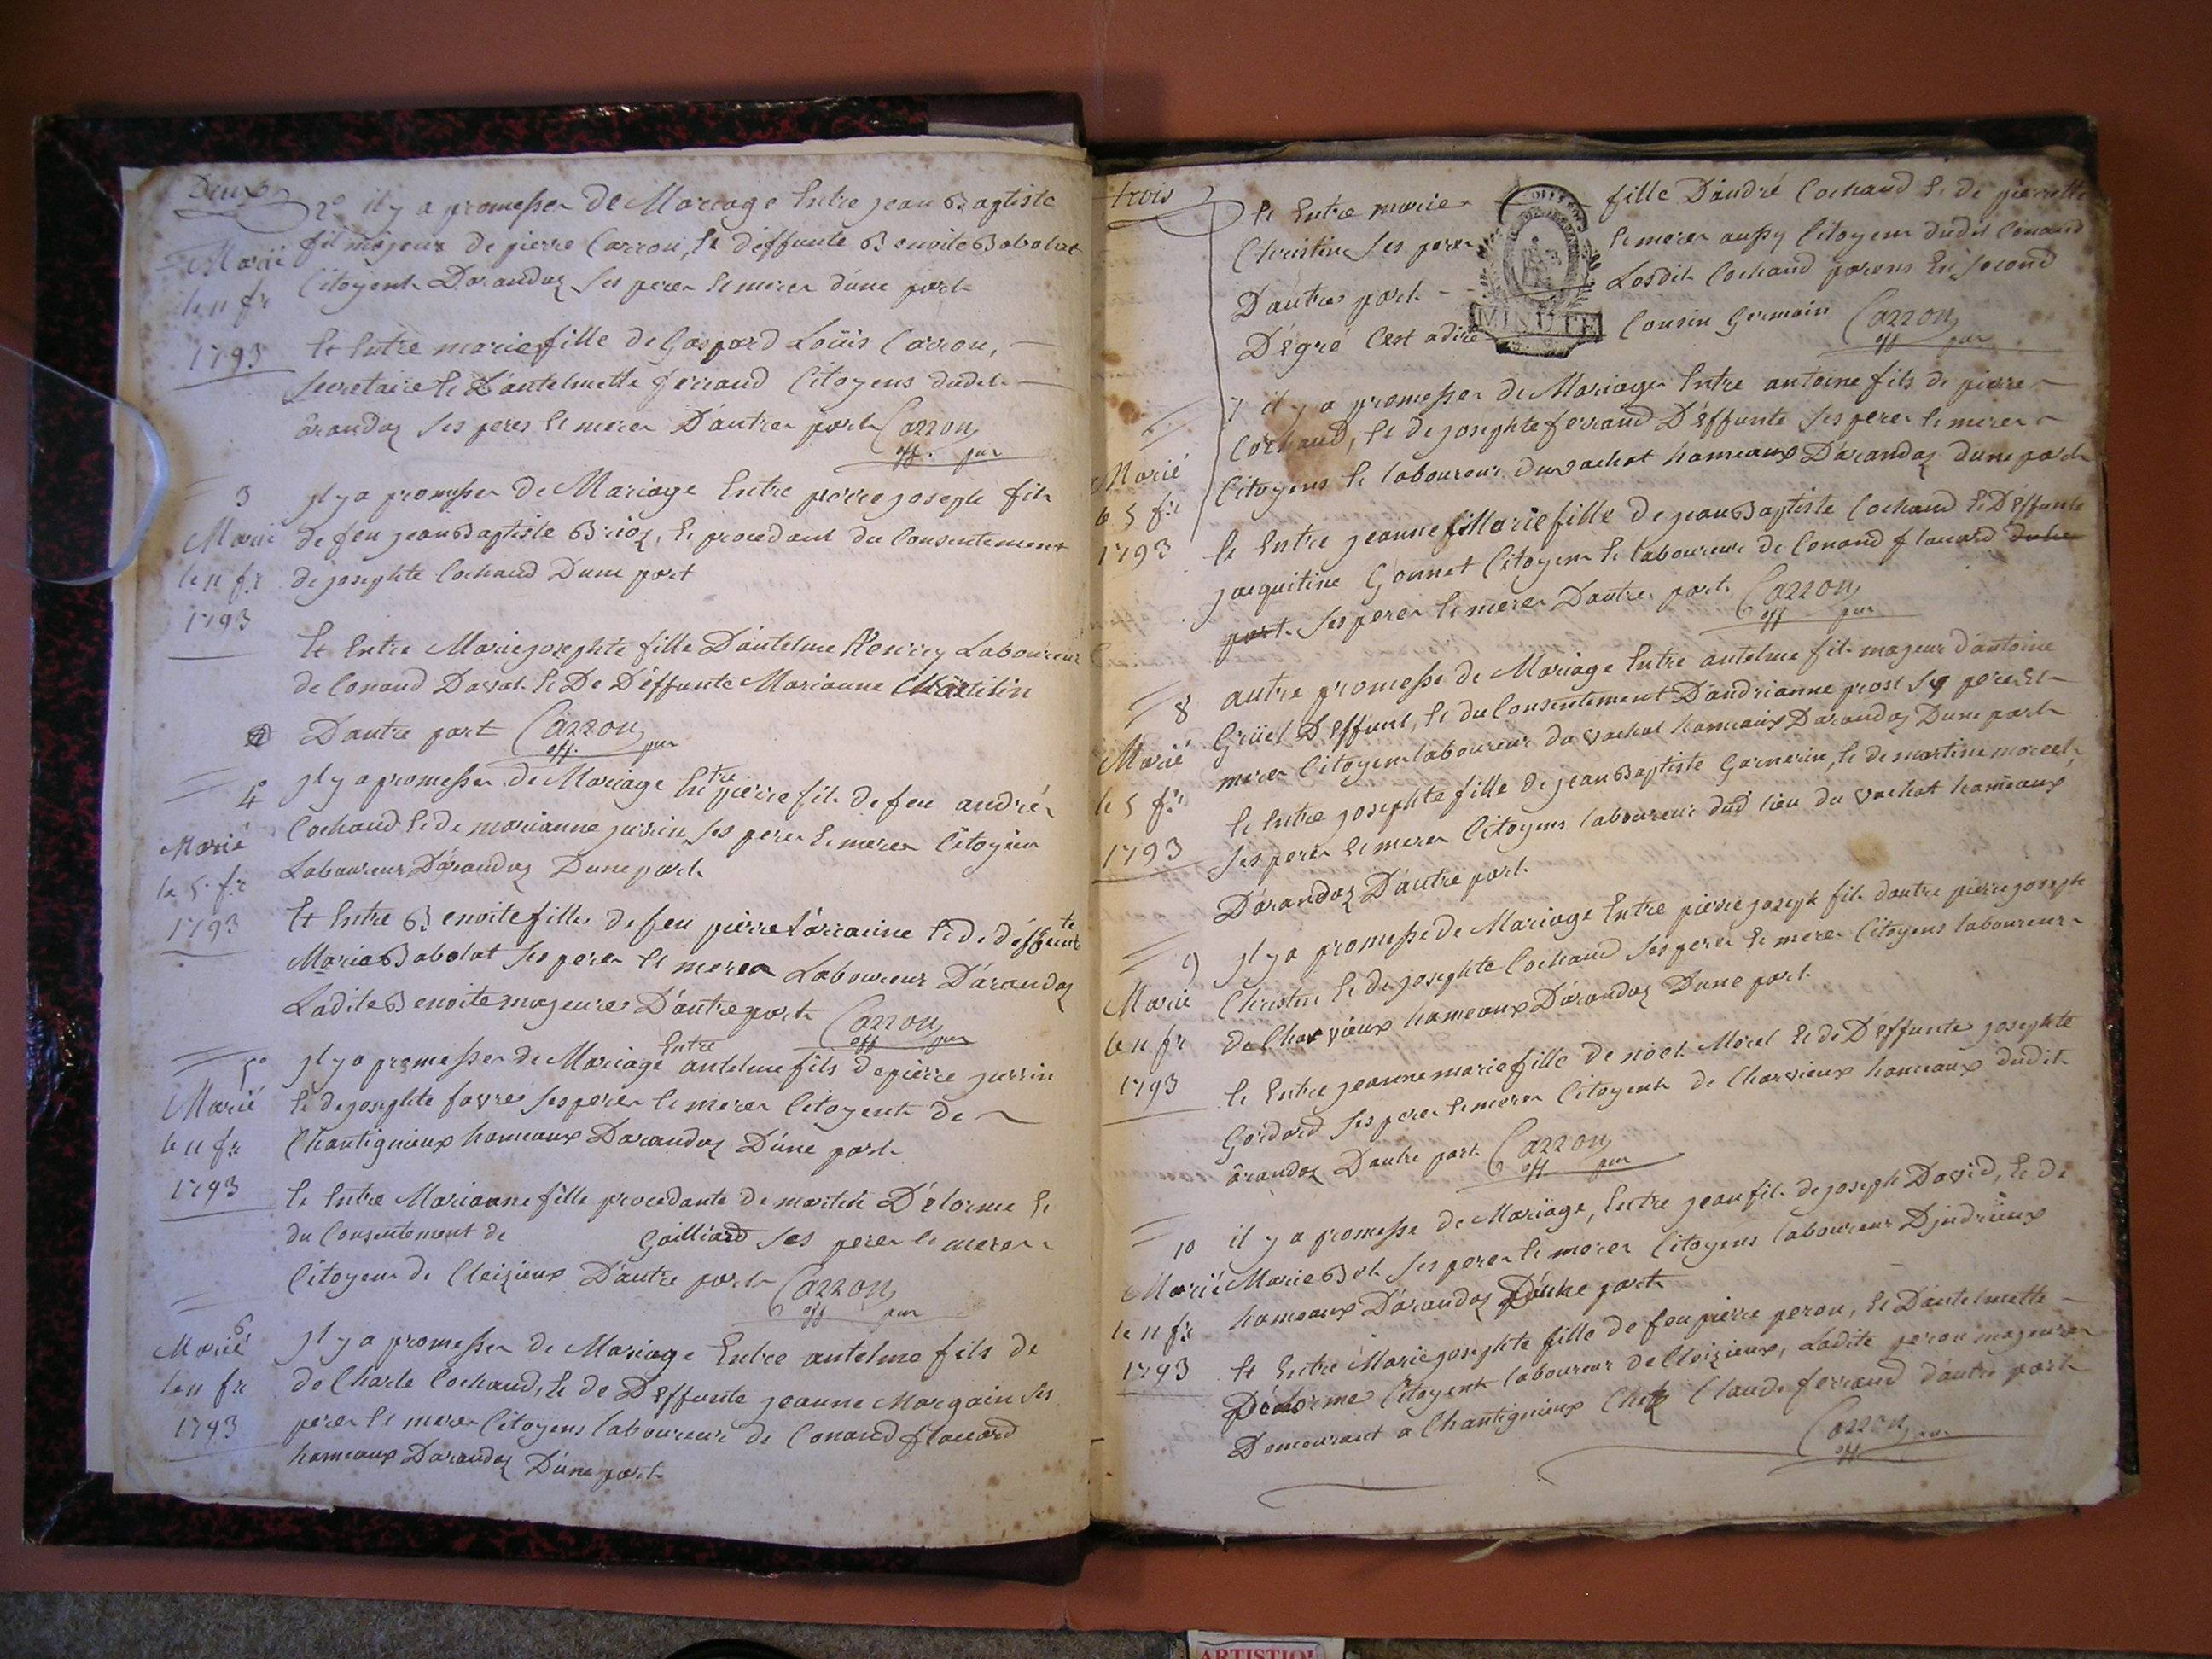 Deux
2º il y a promesser de Mariage Entre jean Baptiste
fil majeur de pierre Carron, Et déffunte Benoite Babolat
Citoyent Darandaz ses perer Et merer d'une part
Marié
le 11 fr
1793
Et Entre marie fille de Gaspard Loüis Carron,
Secretaire Et D'antelmette ferrand Citoyens dudit
ârandaz ses peres Et merer D'autrer part Carron
off. pur
3
Marié
le 11 fr
1793
Il y a promesser de Mariage Entre pierre joseph fils
de feu jean Baptiste Brioz, Et procedant du Consentement
de josephte Cochaud Dune part
Et Entre Marie josephte fille D'antelme Henrey Laboureur
de Conand Daval Et De Déffunte Marianne Martin
D'autre part Carron
off. pur
4º
Marié
le 5 fr
1793
Il y a promesser de Mariage Entre pierre fil de feu andré
Cochaud Et de marianne juvrin ses perer Et merer Citoyen
Laboureur D'arandaz Dune part
Et Entre Benoite fille de feu pierre Lorraine Et de déffunte
Marie Babolat ses perer Et merer Laboureur D'arandaz
Ladite Benoite majeure D'autre part Carron
off pur
5º
Marié
le 11 fr
1793
Il y a promesser de Mariage Entre antelme fils de pierre juvrin
Et de josephte favre ses perer Et merer Citoyent de
Chantignieux hameaux Darandaz D'une part
Et Entre Marianne fille procedante de martin Délorme Et
du Consentement de Gailliard ses perer Et merer
Citoyen de Cleizieux D'autre part Carron
off pur
6
Marié
le 11 fr
1793
Il y a promesser de Mariage Entre antelme fils de
de Charle Cochaud, Et de Deffunte jeanne Margain ses
perer Et merer Citoyens laboureur de Conand flavard
hameaux Darandaz D'une part
trois
Et Entre marie fille D'andré Cochaud Et de pierrette
Christin ses perer Et merer aussy Citoyen dudit Conand
D'autre part Lesdit Cochaud parens En second
Dégré C'est adire Cousin Germain Carron
off pur
MINUTE
7
Marié
le 5 fr
1793
il y a promesser de Mariage Entre antoine fils de pierre
Cochaud, Et de josephte ferrand Déffunte ses perer Et merer
Citoyens Et laboureur du vachat hameaux D'arandaz dune part
Et Entre jeanne Marie fille de jean Baptiste Cochaud Et Deffunte
jacquitine Gonnet Citoyen Et laboureur de Conand flavard dutre
part ses perer Et merer D'autre part Carron
off pur
8
Marié
le 5 fr
1793
autre promesse de Mariage Entre antelme fil majeur d'antoine
Grüel Deffunt, Et du Consentement D'andrianne prost ses pere Et
merer Citoyen laboureur du vachat hameaux Darandaz Dune part
Et Entre josephte fille de jean Baptiste Garnerin, Et de martine morcel
ses perer Et merer Citoyens laboureur dud lieu du vachat hameaux
D'arandaz D'autre part
9
Marié
le 11 fr
1793
Il y a promesse de Mariage Entre pierre joseph fil dautre pierre joseph
Christin Et de josephte Cochaud ses perer Et merer Citoyens laboureur
de Charvieux hameaux D'arandaz Dune part
Et Entre jeanne marie fille de noël Morel Et de Deffunte josephte
Godard ses perer Et merer Citoyent de Charvieux hameaux dudit
ârandaz D'autre part Carron
off pur
10
Marié
le 11 fr
1793
il y a promesse de Mariage, Entre jean fil de joseph David, Et de
Marie Bel ses perer Et merer Citoyens laboureur Djndrieux
hameaux D'arandaz D'une part
Et Entre Marie josephte fille de feu pierre peron, Et D'antelmette
Délorme Citoyent laboureur de Cleizieux, Ladite peron majeure
Demeurant a Chantignieux Chez Claude ferrand d'autre part
Carron
off pur
ARTISTIQU